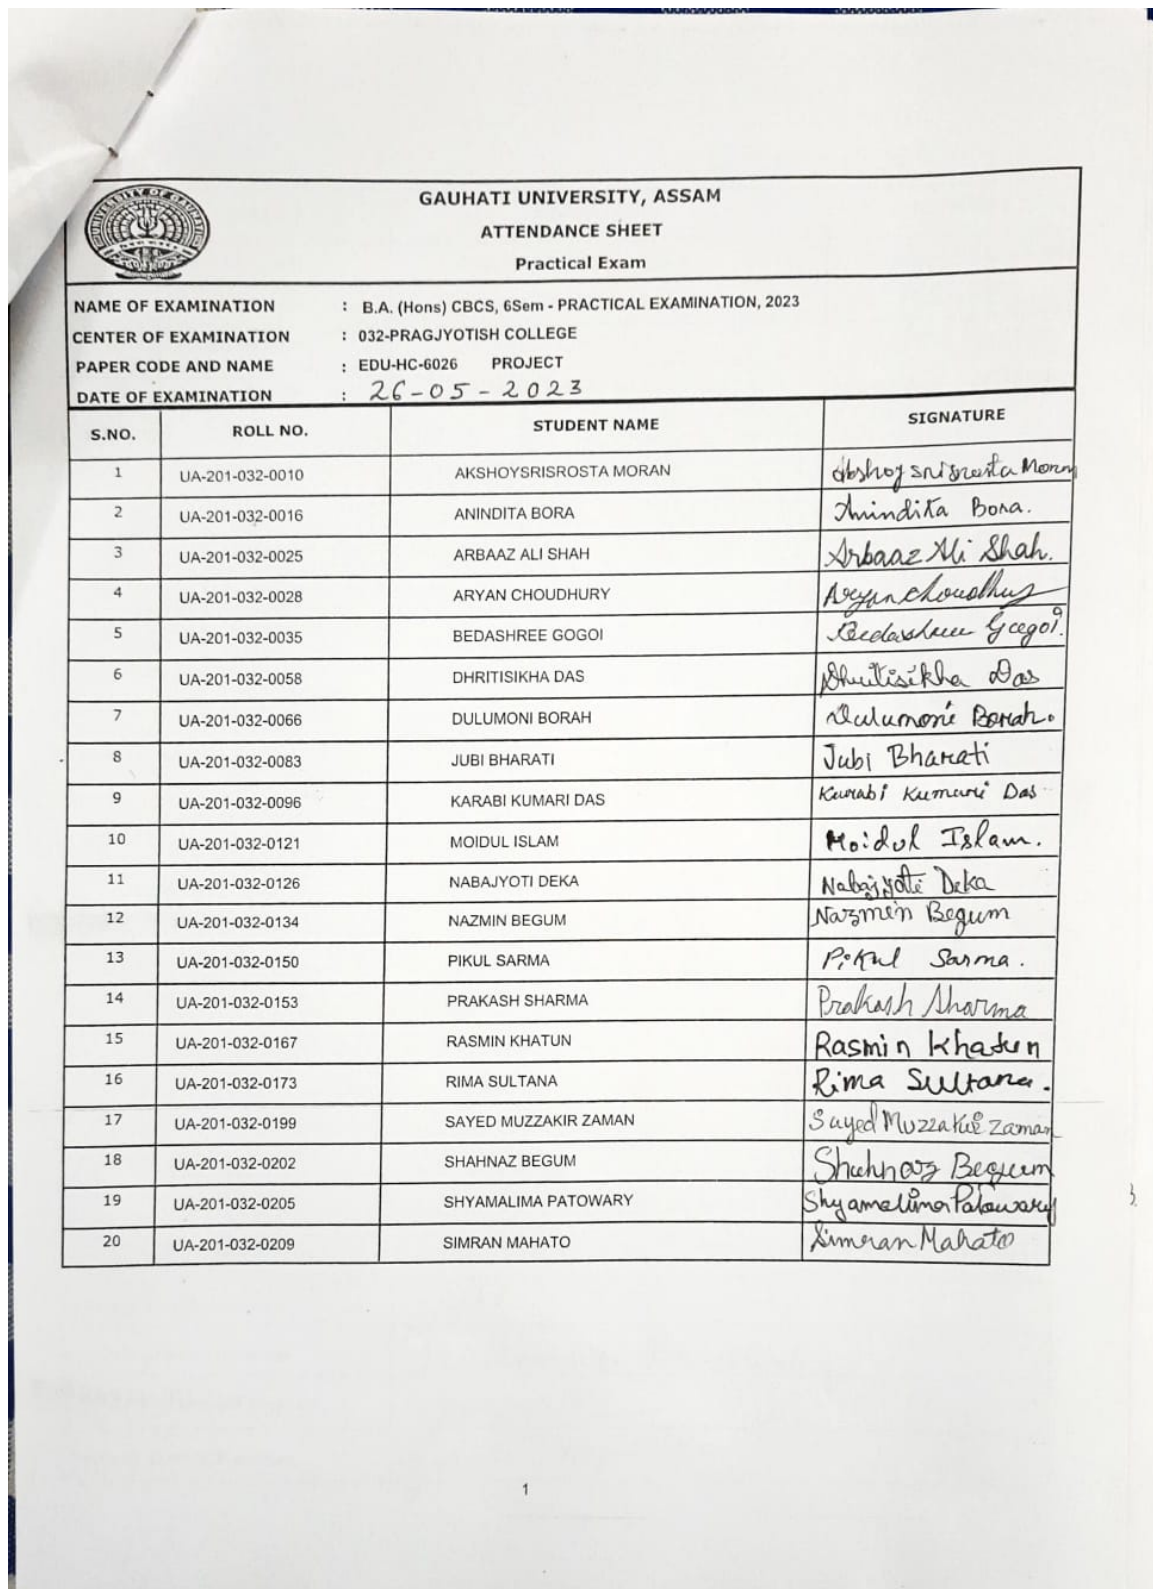 UNIVERSITY OF GAUHATI
GAUHATI UNIVERSITY, ASSAM
ATTENDANCE SHEET
Practical Exam
NAME OF EXAMINATION : B.A. (Hons) CBCS, 6Sem - PRACTICAL EXAMINATION, 2023
CENTER OF EXAMINATION : 032-PRAGJYOTISH COLLEGE
PAPER CODE AND NAME : EDU-HC-6026 PROJECT
DATE OF EXAMINATION : 26-05-2023
S.NO. ROLL NO. STUDENT NAME SIGNATURE
1 UA-201-032-0010 AKSHOYSRISROSTA MORAN
2 UA-201-032-0016 ANINDITA BORA Anindita Bora.
3 UA-201-032-0025 ARBAAZ ALI SHAH Arbaaz Ali Shah.
4 UA-201-032-0028 ARYAN CHOUDHURY Aryan choudhury
5 UA-201-032-0035 BEDASHREE GOGOI Bedashree Gogoi.
6 UA-201-032-0058 DHRITISIKHA DAS Dhritisikha Das
7 UA-201-032-0066 DULUMONI BORAH Dulumoni Borah.
8 UA-201-032-0083 JUBI BHARATI Jubi Bharati
9 UA-201-032-0096 KARABI KUMARI DAS Karabi Kumari Das
10 UA-201-032-0121 MOIDUL ISLAM Moidul Islam.
11 UA-201-032-0126 NABAJYOTI DEKA Nabajyoti Deka
12 UA-201-032-0134 NAZMIN BEGUM Nazmin Begum
13 UA-201-032-0150 PIKUL SARMA Pikul Sarma.
14 UA-201-032-0153 PRAKASH SHARMA Prakash Sharma
15 UA-201-032-0167 RASMIN KHATUN Rasmin Khatun
16 UA-201-032-0173 RIMA SULTANA Rima Sultana.
17 UA-201-032-0199 SAYED MUZZAKIR ZAMAN Sayed Muzzakir Zaman
18 UA-201-032-0202 SHAHNAZ BEGUM Shahnaz Begum
19 UA-201-032-0205 SHYAMALIMA PATOWARY Shyamalima Patowary
20 UA-201-032-0209 SIMRAN MAHATO Simran Mahato
1